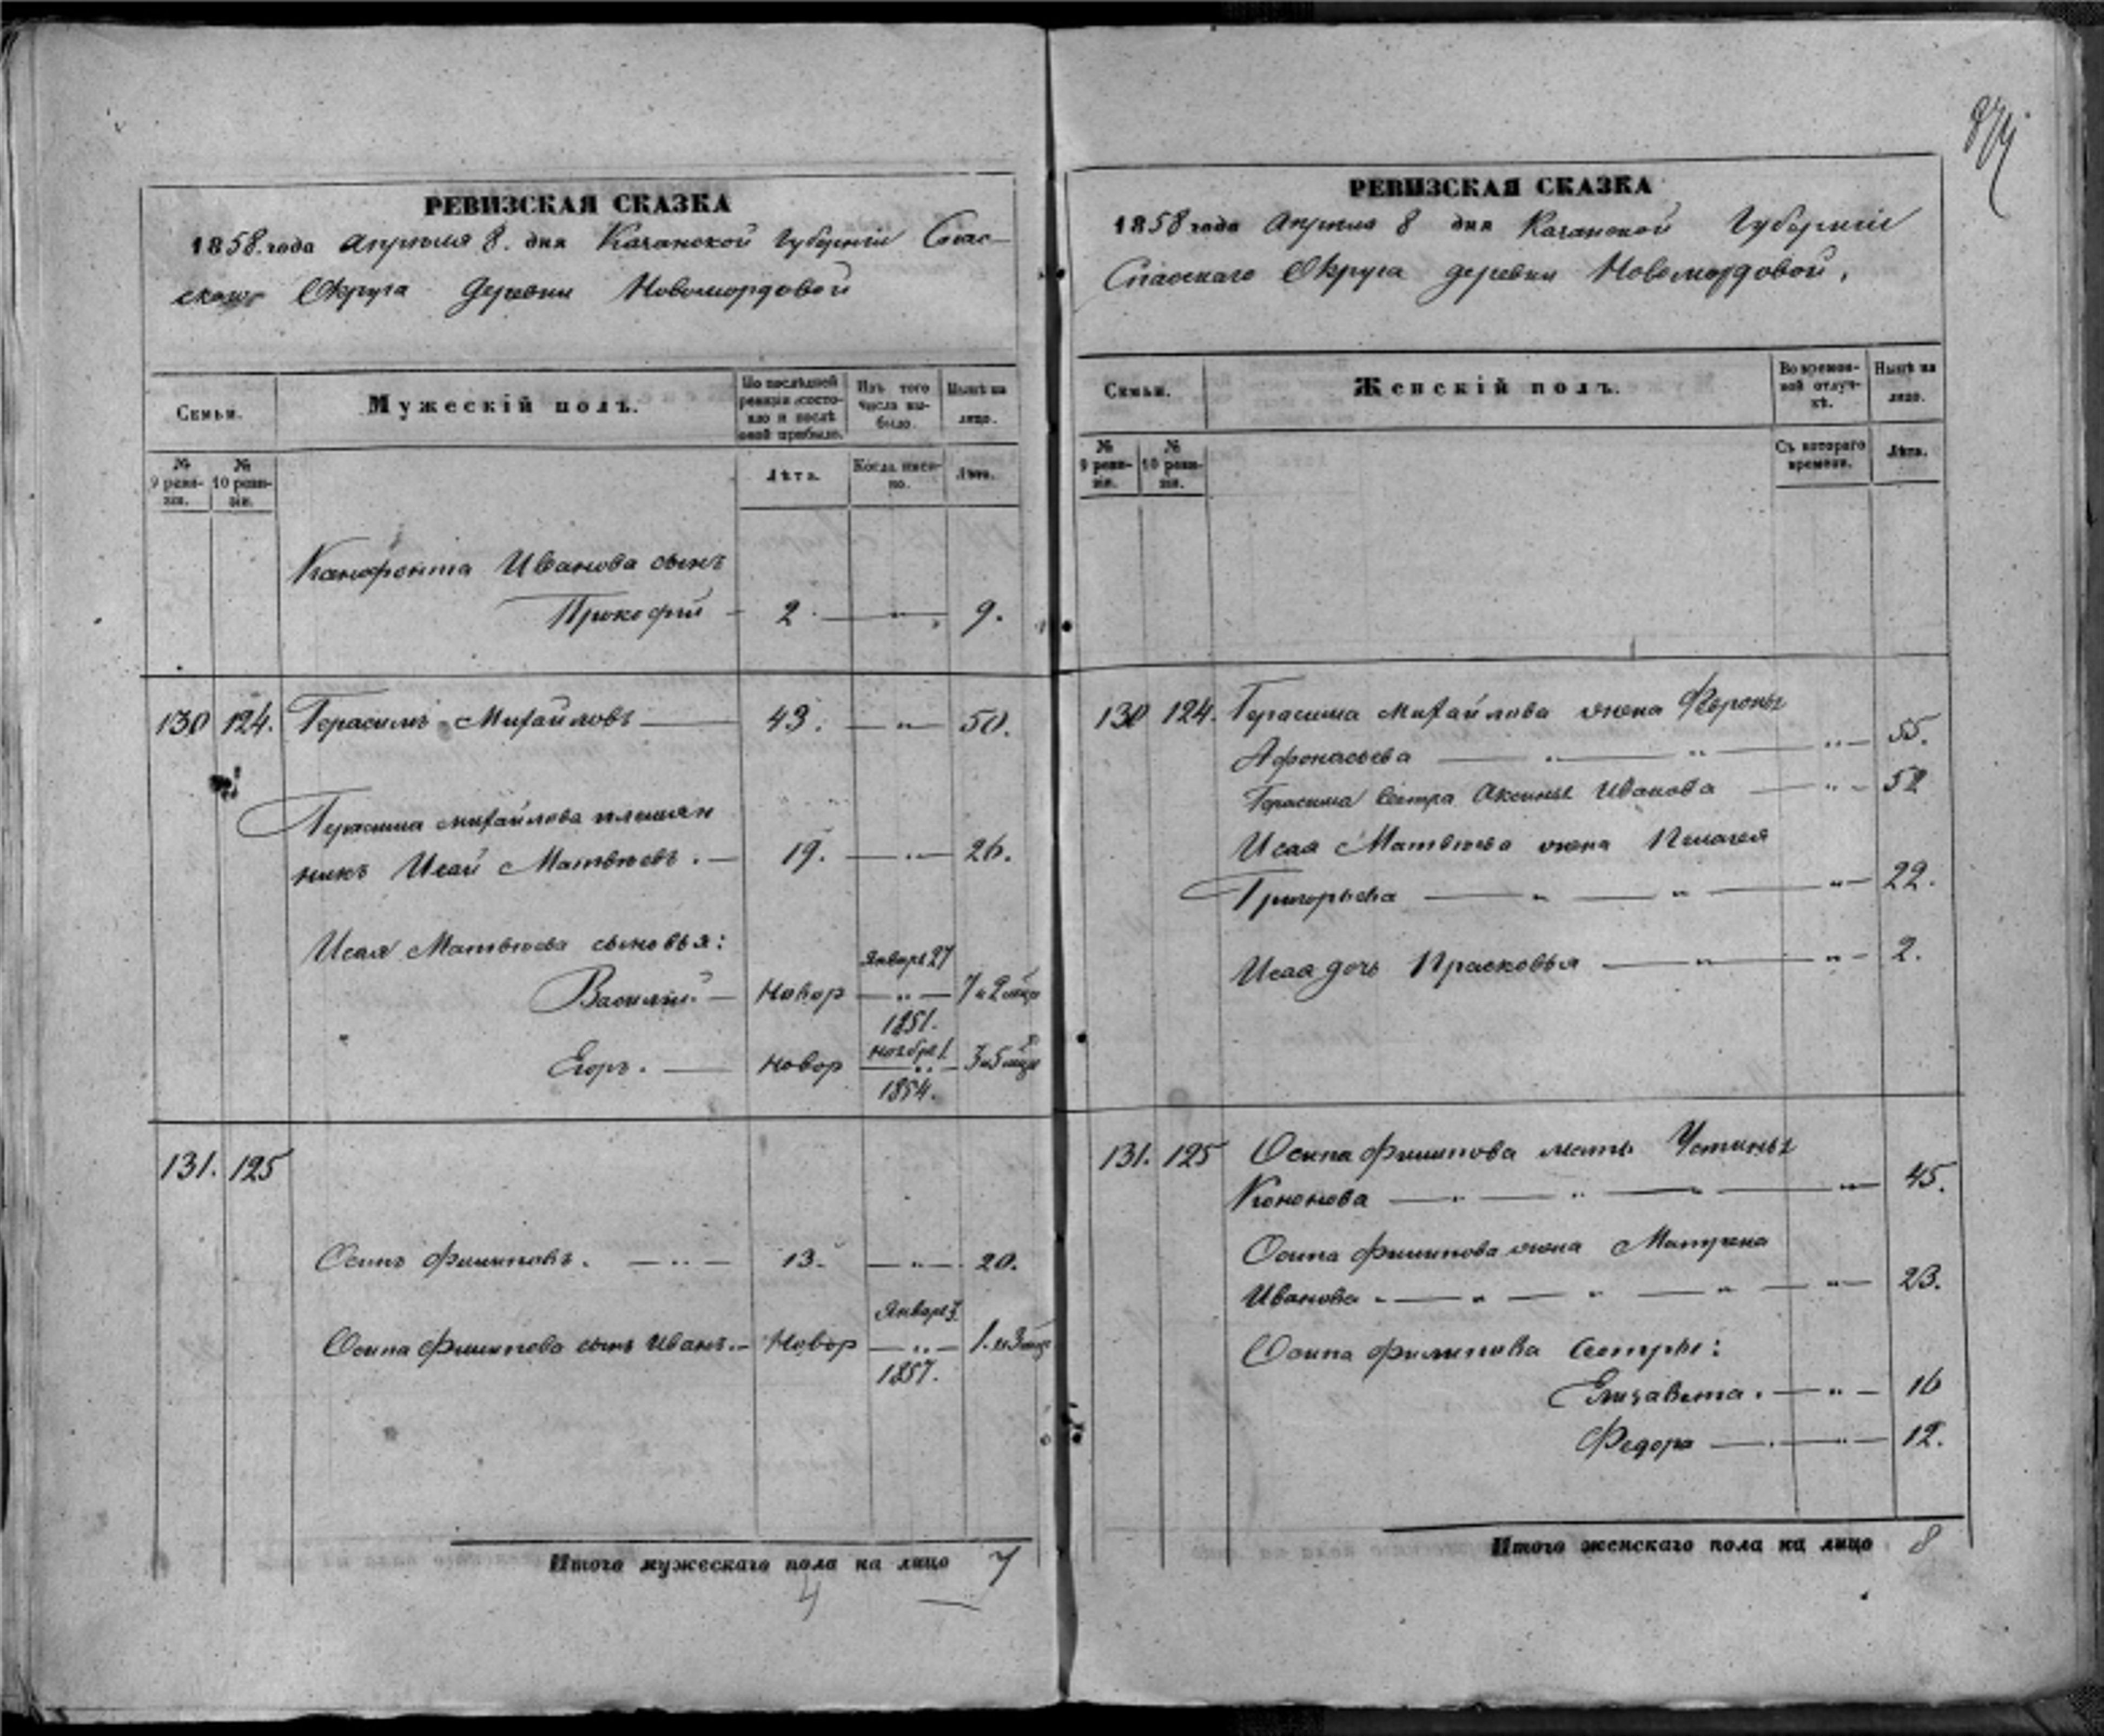 РЕВИЗСКАЯ СКАЗКА
1858 года Апреля 8. дня Казанской Губернiи Спас-
скаго Округа деревни Новомордовой
Семьи.
Мужескiй полъ.
По послѣдней ревизiи состояло и послѣ оной прибыло.
Изъ того числа выбыло.
Нынѣ на лицо.
№ 9 ревизiи.
№ 10 ревизiи.
Лѣта.
Когда именно.
Лѣта.
Ксенофонта Иванова сынъ
Прокофiй — 2. — „ — 9.
130 124. Герасимъ Михайловъ — 43. — „ — 50.
Герасима Михайлова племян
никъ Исай Матвѣевъ. — 19. — „ — 26.
Исая Матвѣева сыновья:
Января 27
Василiй — Новор — „ — 7 и 2 мѣс
1851.
Ноября 1
Егоръ. — Новор — „ — 3 и 5 мѣс
1854.
131. 125
Осипъ Филиповъ. — „ — 13. — „ — 20.
Января 3
Осипа Филипова сынъ Иванъ. — Новор — „ — 1. и 3 мѣс
1857.
Итого мужескаго пола на лицо 7
4
РЕВИЗСКАЯ СКАЗКА
1858 года Апреля 8 дня Казанской Губернiи
Спаскаго Округа деревни Новомордовой,
Семьи.
Женскiй полъ.
Во временной отлучкѣ.
Нынѣ на лицо.
№ 9 ревизiи.
№ 10 ревизiи.
Съ котораго времени.
Лѣта.
130 124. Герасима Михайлова жена Февронья
Афонасьева — „ — „ — „ — 55.
Герасима сестра Аксинья Иванова — „ — 52
Исая Матвѣева жена Пелагея
Григорьева — „ — „ — „ — 22.
Исая дочь Прасковья — „ — „ — 2.
131. 125 Осипа Филипова мать Устинья
Кононова — „ — „ — „ — „ — 45.
Осипа Филипова жена Матрена
Иванова — „ — „ — „ — „ — 23.
Осипа Филипова сестры:
Елизавета. — „ — 16
Федора — „ — 12.
Итого женскаго пола на лицо 8